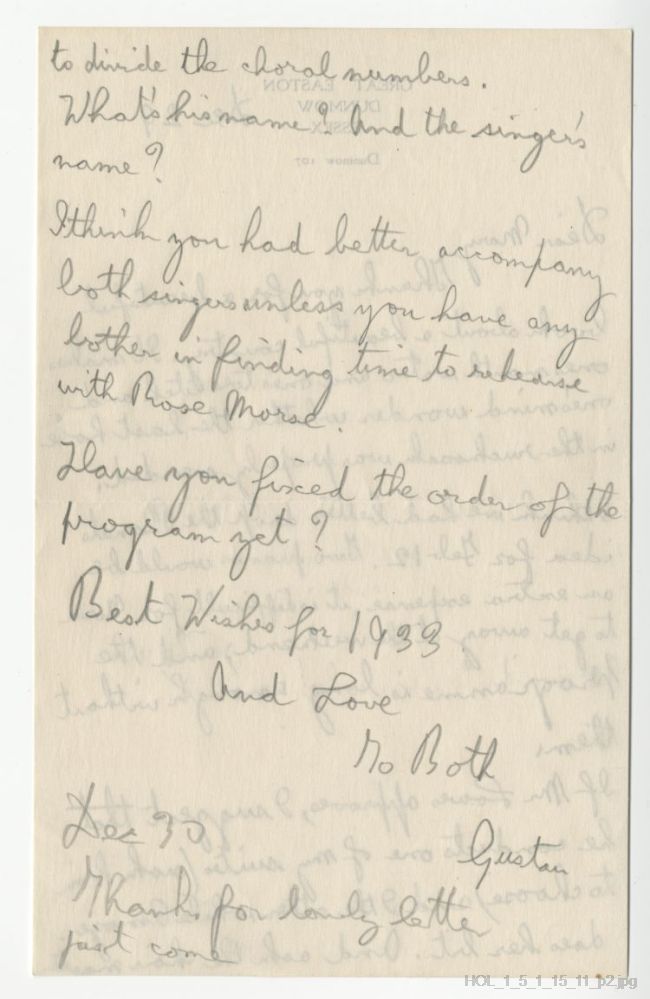 to divide the choral numbers.
What's his name? And the singer's
name?
I think you had better accompany
both singers unless you have any
bother in finding time to rehearse
with Rose Morse.
Have you fixed the order of the
program yet?
Best Wishes for 1933
And Love
To Both
Gustav
Dec 30
Thanks for lovely letter
just come
HOL_1_5_1_15_11_p2.jpg